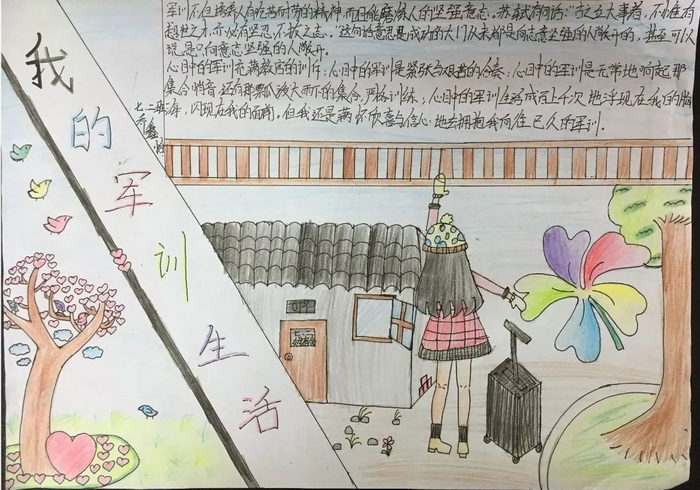 我的军训生活
军训不但培养人有吃苦耐劳的精神,而且能磨炼人的坚强意志。苏轼有句话:“古之立大事者,不惟有
超世之才,亦必有坚忍不拔之志。”这句话意思是成功的大门从来都是向意志坚强的人敞开的,甚至可以
说是只向意志坚强的人敞开。
心目中的军训充满教官的训斥;心目中的军训是紧张与艰苦的合奏;心目中的军训是无常地响起那
集合哨音,还有那瓢泼大雨下的集合,严格训练;心目中的军训生活成百上千次地浮现在我的脑
海,闪现在我的面前。但我还是满怀欣喜与信心地去拥抱我向往已久的军训。
七.二班